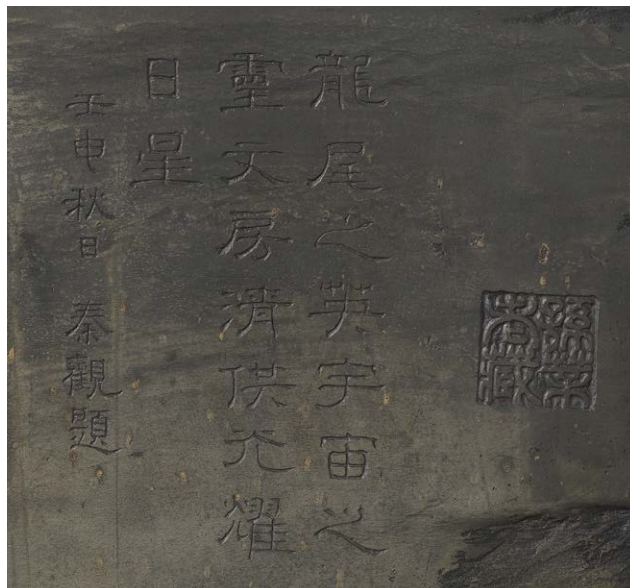 龍尾之英宇宙之
靈文房清供光耀
日星
壬申秋日 秦觀題